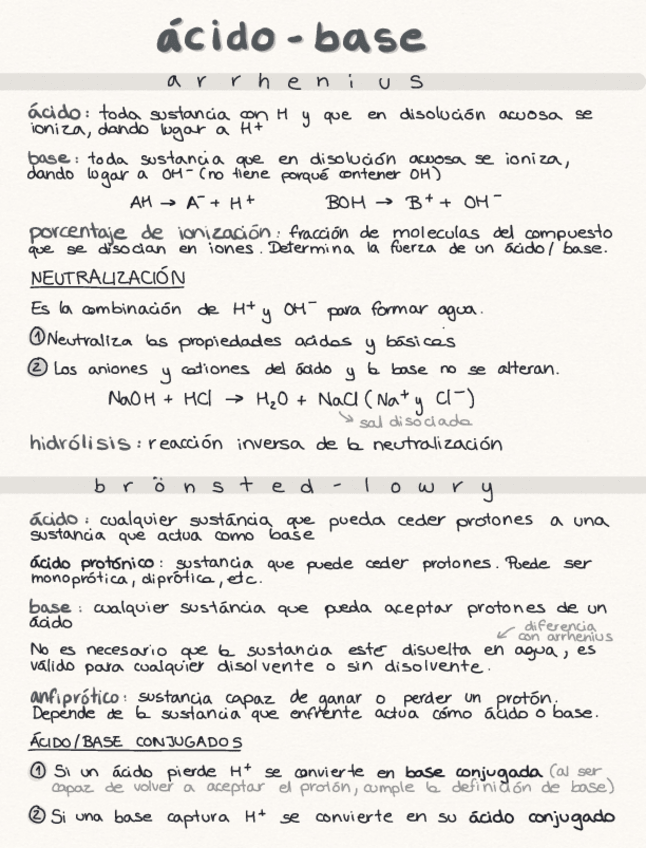 ácido - base
arrhenius
ácido: toda sustancia con H y que en disolución acuosa se
ioniza, dando lugar a H+
base: toda sustancia que en disolución acuosa se ioniza,
dando lugar a OH⁻ (no tiene porqué contener OH)
AH → A⁻ + H⁺ BOH → B⁺ + OH⁻
porcentaje de ionización: fracción de moleculas del compuesto
que se disocian en iones. Determina la fuerza de un ácido/base.
NEUTRALIZACIÓN
Es la combinación de H⁺ y OH⁻ para formar agua.
① Neutraliza las propiedades acidas y básicas
② Los aniones y cationes del ácido y la base no se alteran.
NaOH + HCl → H₂O + NaCl (Na⁺ y Cl⁻)
↘ sal disociada
hidrólisis: reacción inversa de la neutralización
brönsted-lowry
ácido: cualquier sustáncia que pueda ceder protones a una
sustancia que actua como base
ácido protónico: sustancia que puede ceder protones. Puede ser
monoprótica, diprótica, etc.
base: cualquier sustáncia que pueda aceptar protones de un
ácido
↙ diferencia
con arrhenius
No es necesario que la sustancia esté disuelta en agua, es
válido para cualquier disolvente o sin disolvente.
anfiprótico: sustancia capaz de ganar o perder un protón.
Depende de la sustancia que enfrente actua cómo ácido o base.
ÁCIDO/BASE CONJUGADOS
① Si un ácido pierde H⁺ se convierte en base conjugada (al ser
capaz de volver a aceptar el protón, cumple la definición de base)
② Si una base captura H⁺ se convierte en su ácido conjugado